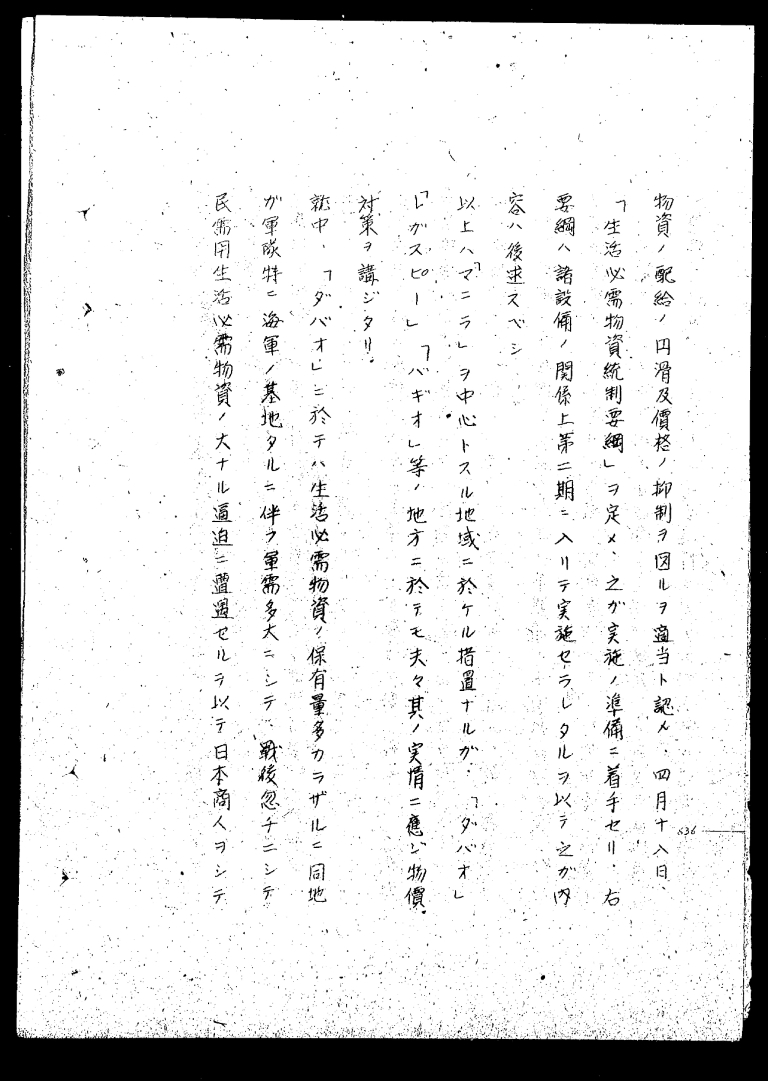 物資ノ配給ノ円滑及價格ノ抑制ヲ図ルヲ適当ト認メ、四月十八日
「生活必需物資統制要綱」ヲ定メ、之ガ実施ノ準備ニ着手セリ、右
要綱ハ諸設備ノ関係上第二期ニ入リテ実施セラレタルヲ以テ之ガ内
容ハ後述スベシ
以上ハ「マニラ」ヲ中心トスル地域ニ於ケル措置ナルガ、「ダバオ」
「レガスピー」「バギオ」等ノ地方ニ於テモ夫々其ノ実情ニ應ジ物價
対策ヲ講ジタリ、
就中、「ダバオ」ニ於テハ生活必需物資ノ保有量多カラザルニ同地
ガ軍隊特ニ海軍ノ基地タルニ伴フ軍需多大ニシテ、戦後忽チニシテ
民需用生活必需物資ノ大ナル逼迫ニ遭遇セルヲ以テ日本商人ヲシテ
636